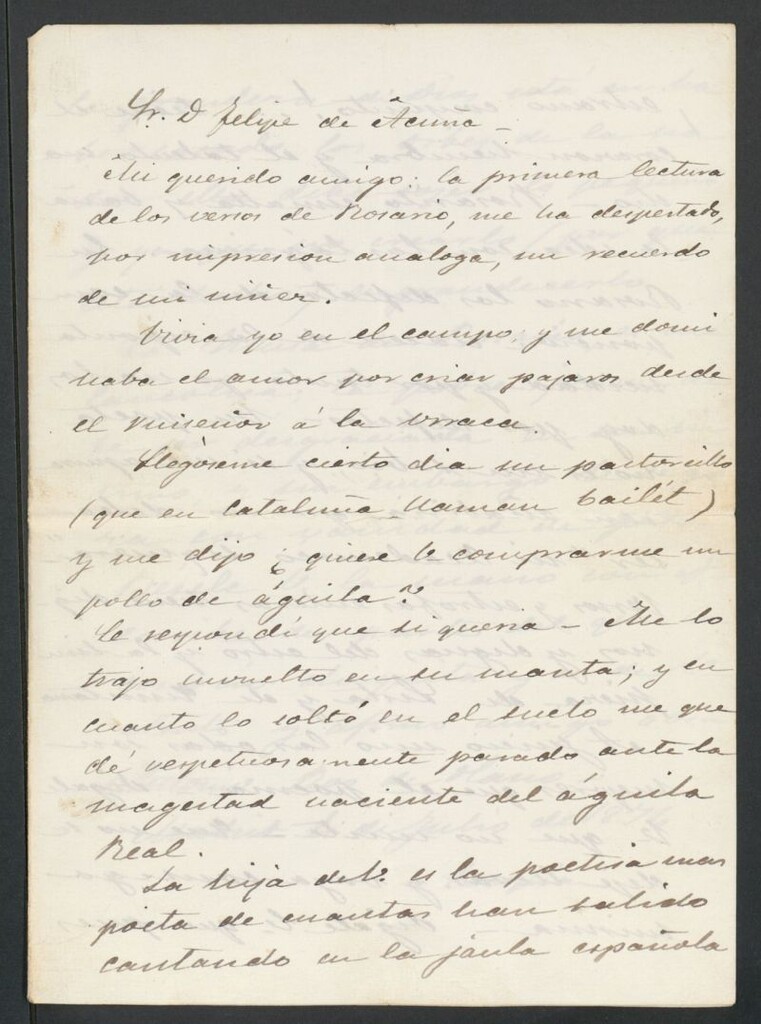 Sr. D Felipe de Acuña —
Mi querido amigo: la primera lectura
de los versos de Rosario, me ha despertado,
por impresion analoga, un recuerdo
de mi niñez.
Vivia yo en el campo, y me domi
naba el amor por criar pájaros desde
el ruiseñor á la urraca.
Llegóseme cierto dia un pastorcillo
(que en Cataluña llaman bailét)
y me dijo ¿quiere V. comprarme un
pollo de águila?
Le respondí que si queria — Me lo
trajo envuelto en su manta; y en
cuanto lo soltó en el suelo me que
dé respetuosamente parado ante la
magestad naciente del águila
Real.
La hija de V. es la poetisa mas
poeta de cuantas han salido
cantando en la jaula española